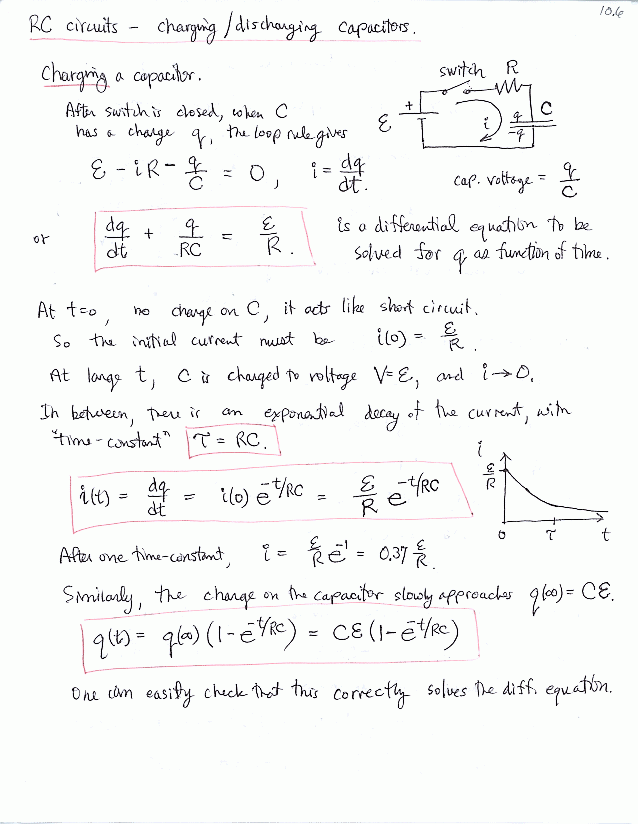 10.6
RC circuits - charging/discharging capacitors.
Charging a capacitor.
switch R
After switch is closed, when C
has a charge q, the loop rule gives
+ ℰ i q q C
ℰ - iR - q/C = 0, i = dq/dt.
cap. voltage = q/C
or dq/dt + q/RC = ℰ/R.
is a differential equation to be
solved for q as function of time.
At t=0, no charge on C, it acts like short circuit.
So the initial current must be i(0) = ℰ/R.
At large t, C is charged to voltage V=ℰ, and i→0.
In between, there is an exponential decay of the current, with
"time-constant" τ = RC.
i(t) = dq/dt = i(0) e^-t/RC = ℰ/R e^-t/RC
i ℰ/R 0 τ t
After one time-constant, i = ℰ/R e^-1 = 0.37 ℰ/R.
Similarly, the charge on the capacitor slowly approaches q(∞) = Cℰ.
q(t) = q(∞) (1-e^-t/RC) = Cℰ (1-e^-t/RC)
One can easily check that this correctly solves the diff. equation.